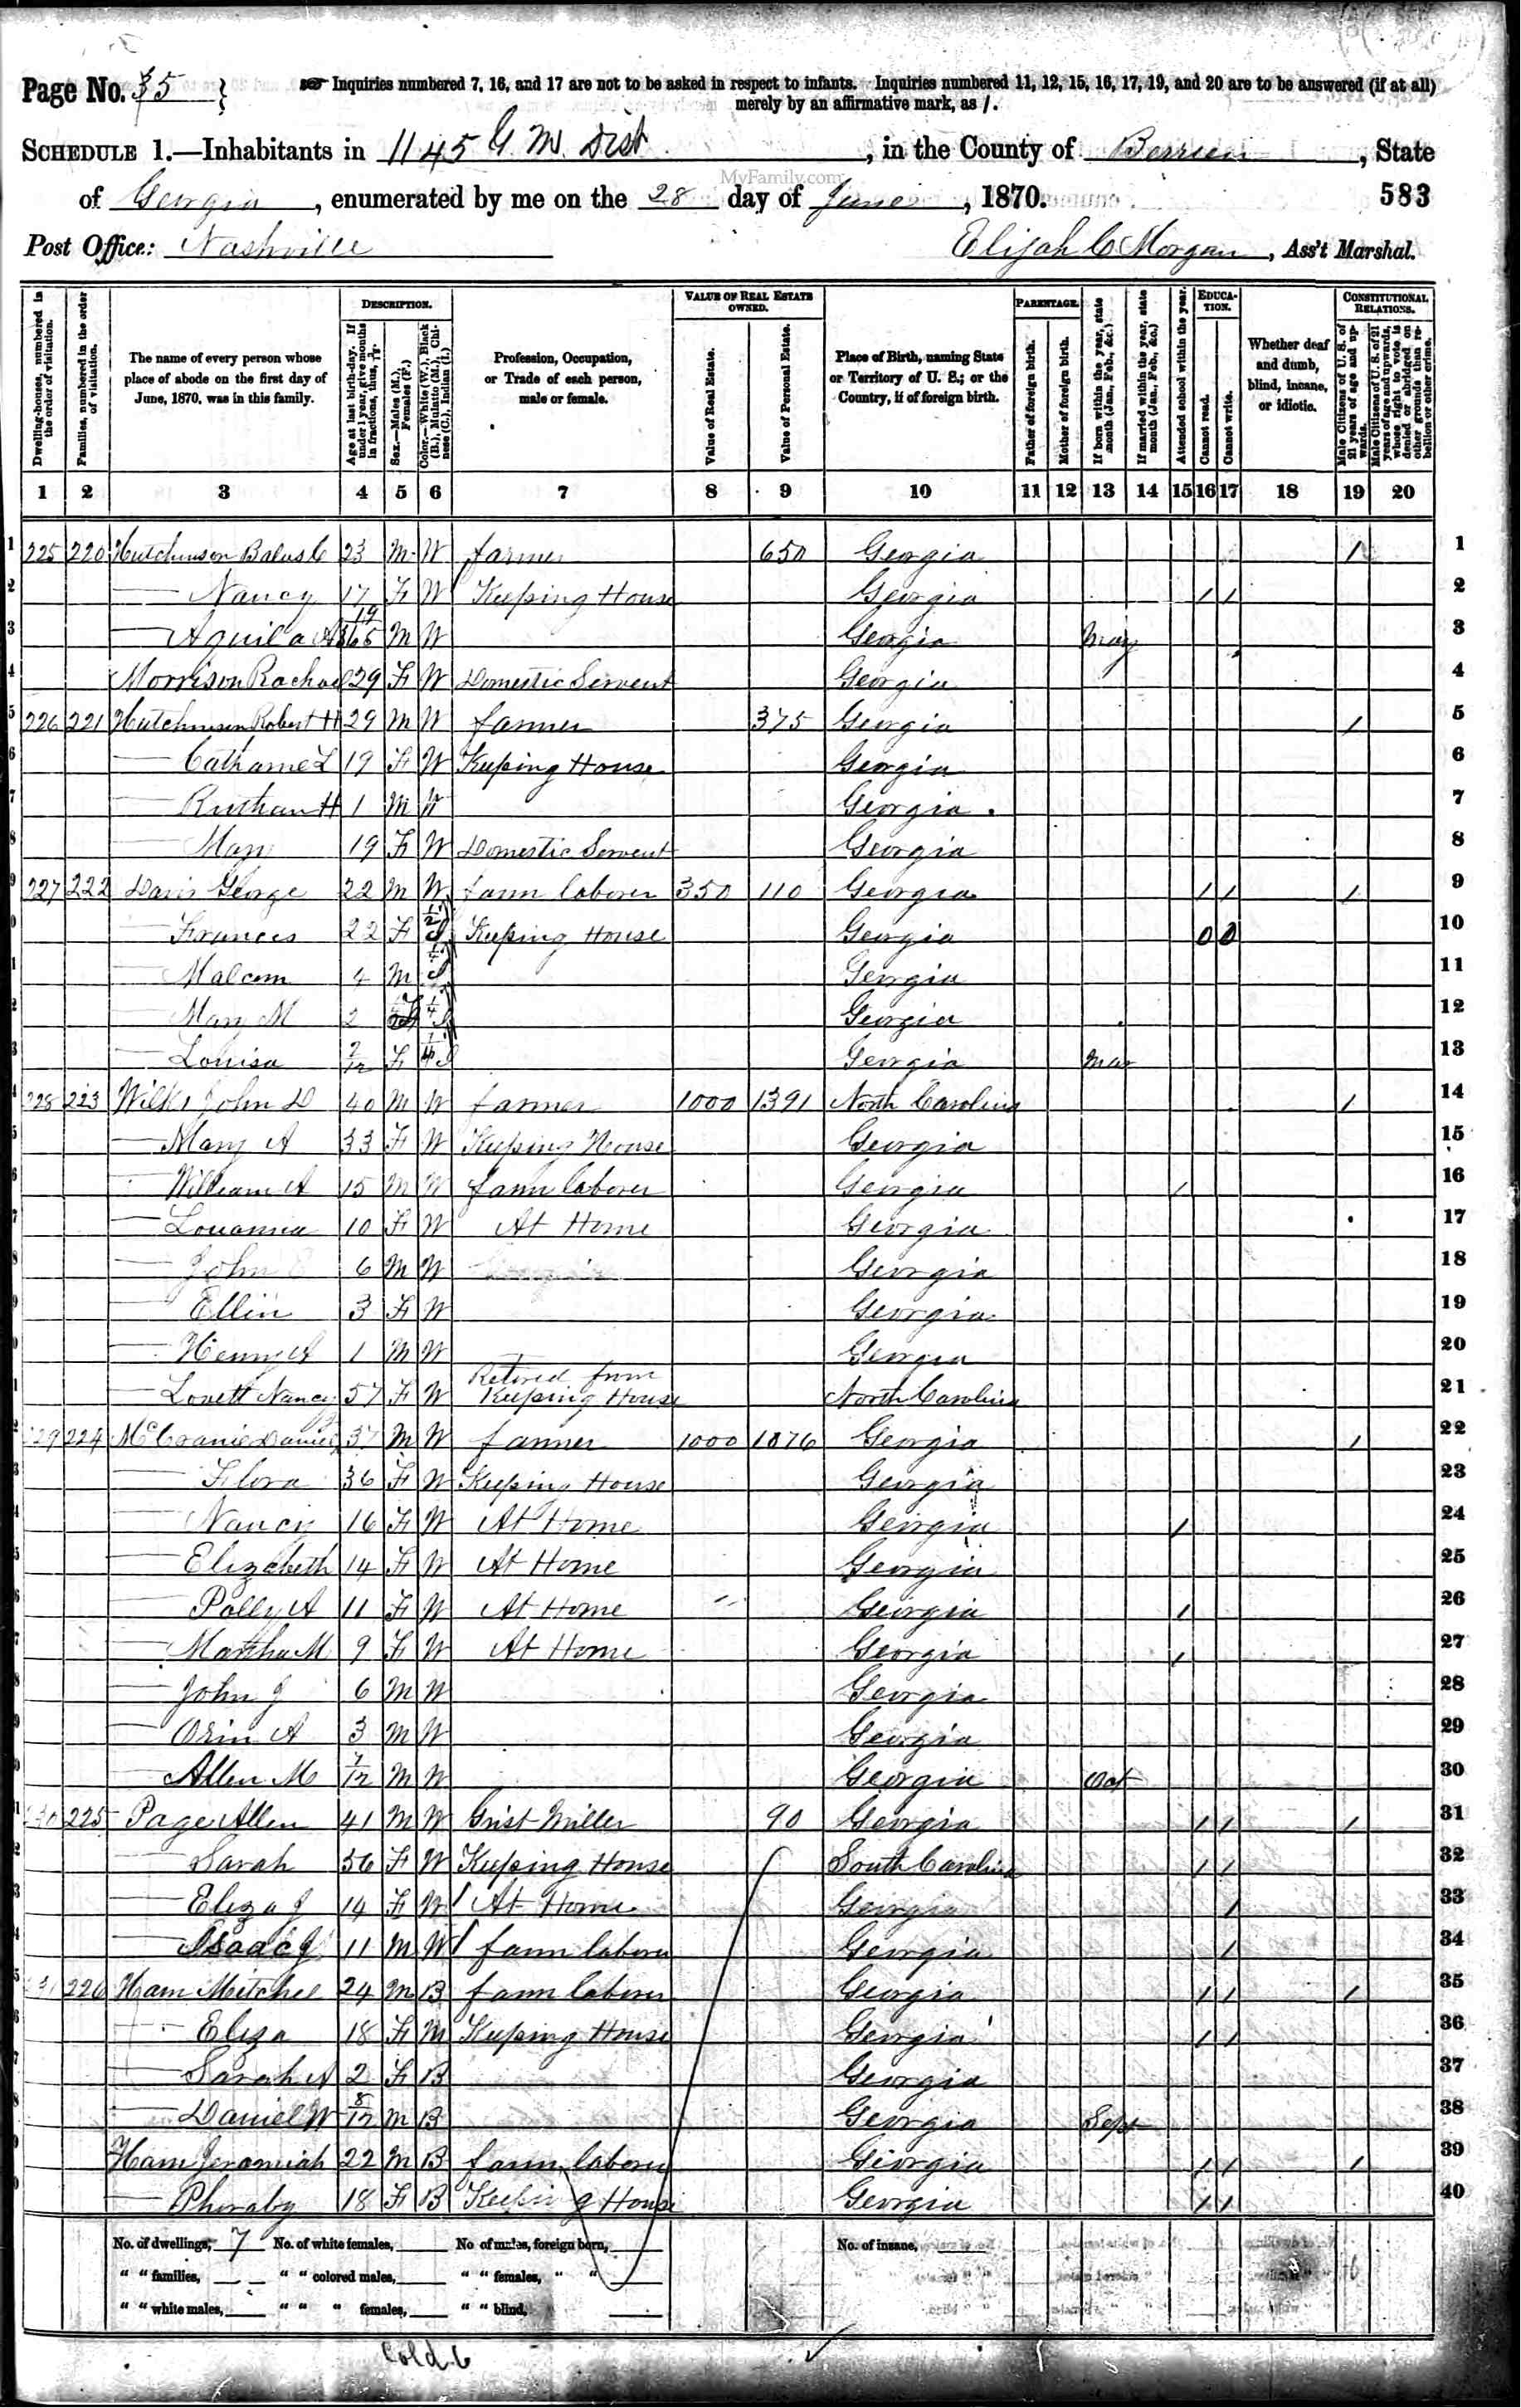 Page No. 35 } Inquiries numbered 7, 16, and 17 are not to be asked in respect to infants. Inquiries numbered 11, 12, 15, 16, 17, 19, and 20 are to be answered (if at all)
merely by an affirmative mark, as /.
SCHEDULE 1.—Inhabitants in 1145 G. M. Dist, in the County of Berrien, State
MyFamily.com
of Georgia, enumerated by me on the 28 day of June, 1870. 583
Post Office: Nashville Elijah C Morgan, Ass't Marshal.
Dwelling-houses, numbered in the order of visitation.
Families, numbered in the order of visitation.
The name of every person whose place of abode on the first day of June, 1870, was in this family.
DESCRIPTION.
Age at last birth-day. If under 1 year, give months in fractions, thus, 3/12.
Sex.—Males (M.), Females (F.)
Color.—White (W.), Black (B.), Mulatto (M.), Chinese (C.), Indian (I.)
Profession, Occupation, or Trade of each person, male or female.
VALUE OF REAL ESTATE OWNED.
Value of Real Estate.
Value of Personal Estate.
Place of Birth, naming State or Territory of U. S.; or the Country, if of foreign birth.
PARENTAGE.
Father of foreign birth.
Mother of foreign birth.
If born within the year, state month (Jan. Feb., &c.)
If married within the year, state month (Jan. Feb., &c.)
Attended school within the year.
EDUCATION.
Cannot read.
Cannot write.
Whether deaf and dumb, blind, insane, or idiotic.
CONSTITUTIONAL RELATIONS.
Male Citizens of U. S. of 21 years of age and upwards.
Male Citizens of U. S. of 21 years of age and upwards, whose right to vote is denied or abridged on other grounds than rebellion or other crime.
1 2 3 4 5 6 7 8 9 10 11 12 13 14 15 16 17 18 19 20
1 225 220 Hutchinson 23 M W farmer 650 Georgia / 1
2 — Nancy 17 F W Keeping House Georgia / / 2
3 — Aquila M W Georgia May 3
4 Morrison Rachael 29 F W Domestic Servent Georgia 4
5 226 221 Hutchinson Robert H 29 M W farmer 375 Georgia / 5
6 — Catharine L 19 F W Keeping House Georgia 6
7 — H 1 M W Georgia 7
8 — Mary 19 F W Domestic Servent Georgia 8
9 227 222 Davis George 22 M W farm laborer 350 110 Georgia / / / 9
— Frances 22 F 1/2 I Keeping House Georgia 0 0 10
— Malcom 4 M 1/4 I Georgia 11
— Mary M 2 F 1/4 I Georgia 12
— Louisa F 1/4 I Georgia Mar 13
228 223 Wilks John D 40 M W farmer 1000 1391 North Carolina / 14
— Mary A 33 F W Keeping House Georgia 15
— William A 15 M W farm laborer Georgia / 16
— Louanna 10 F W At Home Georgia 17
— John 6 M W Georgia 18
— Ellin 3 F W Georgia 19
— Henry A 1 M W Georgia 20
— Lovett Nancy 57 F W Retired from Keeping House North Carolina 21
229 224 McCranie Daniel 37 M W farmer 1000 1076 Georgia / 22
— Flora 36 F W Keeping House Georgia 23
— Nancy 16 F W At Home Georgia / 24
— Elizebeth 14 F W At Home Georgia 25
— Polly A 11 F W At Home Georgia / 26
— Martha M 9 F W At Home Georgia / 27
— John J 6 M W Georgia 28
— Orin A 3 M W Georgia 29
— Allen M 7/12 M W Georgia Oct 30
230 225 Page Allen 41 M W Grist Miller 90 Georgia / / / 31
— Sarah 56 F W Keeping House South Carolina / / 32
— Eliza J 14 F W At Home Georgia / 33
— Isaac J 11 M W farm laborer Georgia / 34
231 226 Ham Mitchel 24 M B farm laborer Georgia / / / 35
— Eliza 18 F M Keeping House Georgia / / 36
— Sarah A 2 F B Georgia 37
— Daniel W 8/12 M B Georgia Sept 38
Ham Jeramiah 22 M B farm laborer Georgia / / / 39
— Pheraby 18 F B Keeping House Georgia / / 40
No. of dwellings, 7 No. of white females, No. of males, foreign born, No. of insane,
" " families, " " colored males, " " females, " "
" " white males, " " " females, " " blind,
Cold 6